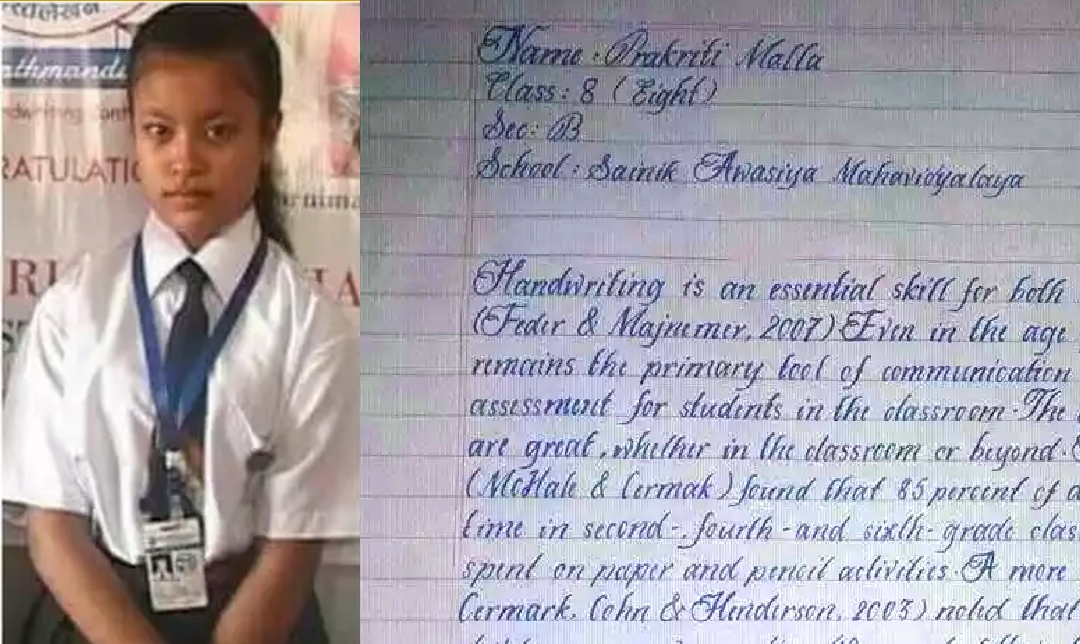 त्यलेखन
athmandu
ndwriting Cont
RATULATIO
Name : Prakriti Malla
Class : 8 (Eight)
Sec : B
School : Sainik Awasiya Mahavidyalaya
Handwriting is an essential skill for both
(Feder & Majnemer, 2007) Even in the age
remains the primary tool of communication
assessment for students in the classroom. The
are great, whether in the classroom or beyond.
(McHale & Cermak) found that 85 percent of
time in second-, fourth - and sixth- grade clas
spent on paper and pencil activities. A more
Cermark, Cohn & Hinderson, 2003) noted that